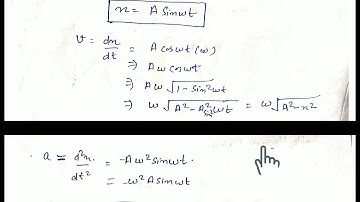 x = A Sinωt
v = dx/dt = A cosωt (ω)
⇒ Aω cosωt
⇒ Aω √(1 - Sin²ωt)
⇒ ω √(A² - A² ωt) = ω √(A² - x²)
a = d²x/dt² = -Aω² sinωt
= -ω² A sinωt